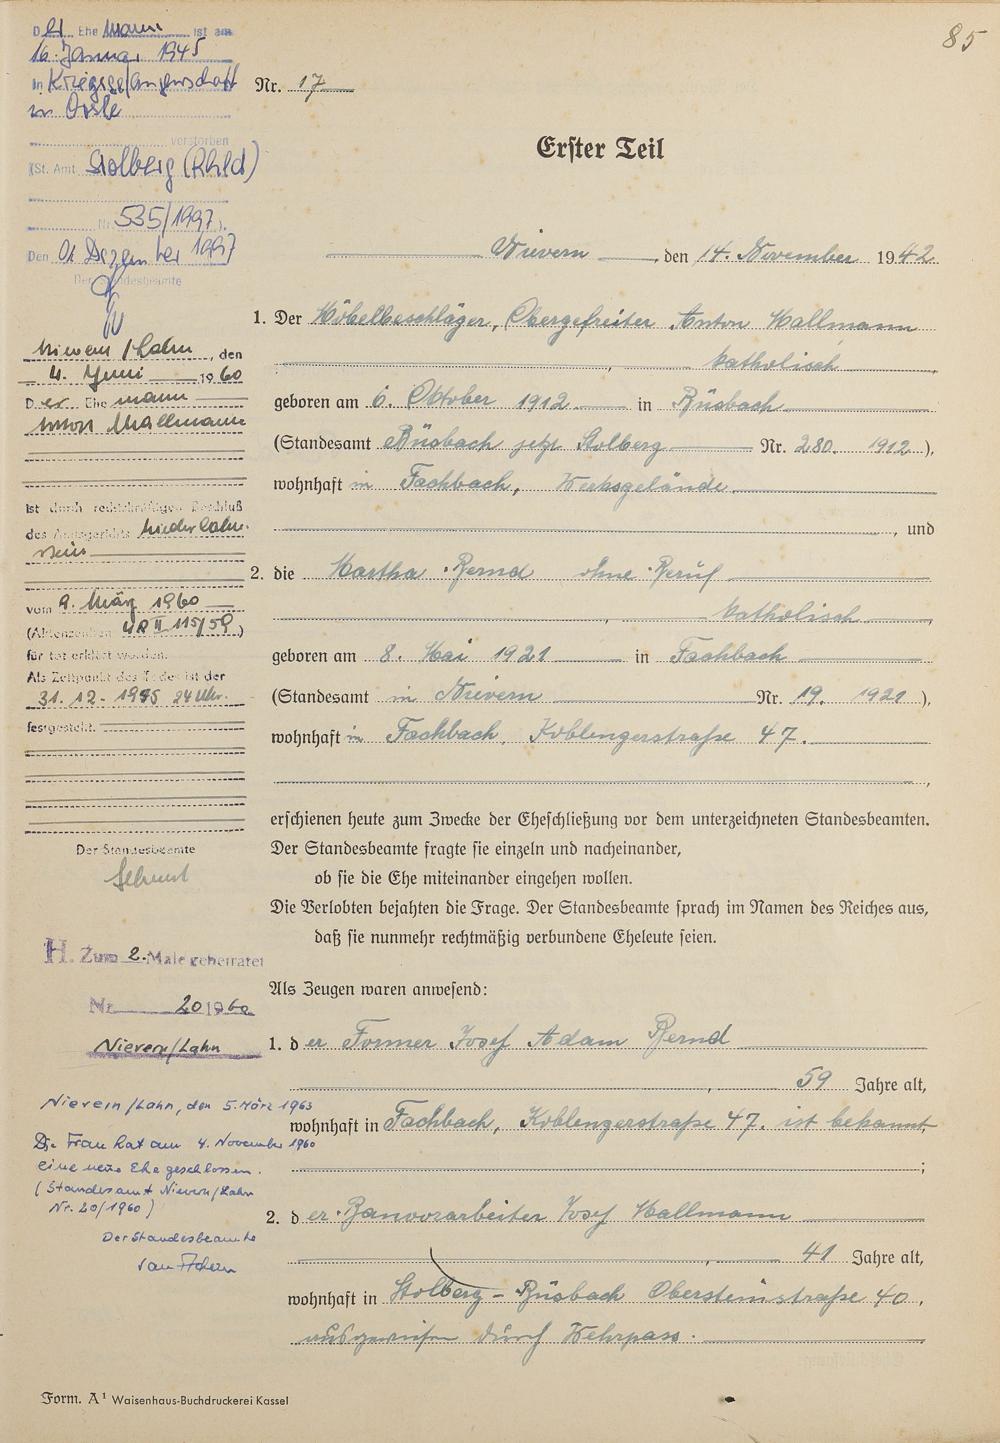 85
Der Ehemann ist am
16. Januar 1945
in Kriegsgefangenschaft
in
verstorben
(St. Amt Stolberg (Rhld)
Nr. 535/1997).
Den 01. Dezember 1997
Der Standesbeamte
Nievern/Lahn, den
4. Juni 1960
Der Ehemann
Anton Mallmann
ist durch rechtskräftigen Beschluß
des Amtsgerichts Niederlahn-
stein
vom 9. März 1960
(Aktenzeichen 4 R II 115/59)
für tot erklärt worden.
Als Zeitpunkt des Todes ist der
31.12.1945 24 Uhr.
festgestellt.
Der Standesbeamte
H. Zum 2. Male geheiratet
Nr. 20 1960
Nievern/Lahn
Nievern/Lahn, den 5. März 1963
Die Frau hat am 4. November 1960
eine neue Ehe geschlossen.
(Standesamt Nievern/Lahn
Nr. 20/1960)
Der Standesbeamte
Nr. 17
Erster Teil
Nievern, den 14. November 1942
1. Der Möbelbeschläger, Obergefreiter Anton Mallmann
, katholisch,
geboren am 6. Oktober 1912 in Büsbach
(Standesamt Büsbach jetzt Stolberg Nr. 280. 1912),
wohnhaft in Fachbach, Werksgelände.
, und
2. die Martha Bernd ohne Beruf
, katholisch,
geboren am 8. Mai 1921 in Fachbach
(Standesamt in Nievern Nr. 19. 1921),
wohnhaft in Fachbach, Koblenzerstraße 47.
,
erschienen heute zum Zwecke der Eheschließung vor dem unterzeichneten Standesbeamten.
Der Standesbeamte fragte sie einzeln und nacheinander,
ob sie die Ehe miteinander eingehen wollen.
Die Verlobten bejahten die Frage. Der Standesbeamte sprach im Namen des Reiches aus,
daß sie nunmehr rechtmäßig verbundene Eheleute seien.
Als Zeugen waren anwesend:
1. der Former Josef Adam Bernd
, 59 Jahre alt,
wohnhaft in Fachbach, Koblenzerstraße 47. ist bekannt
;
2. der Josef Mallmann
, 41 Jahre alt,
wohnhaft in Stolberg - Büsbach Obersteinstraße 40,
ausgewiesen durch Wehrpass.
Form. A¹ Waisenhaus-Buchdruckerei Kassel